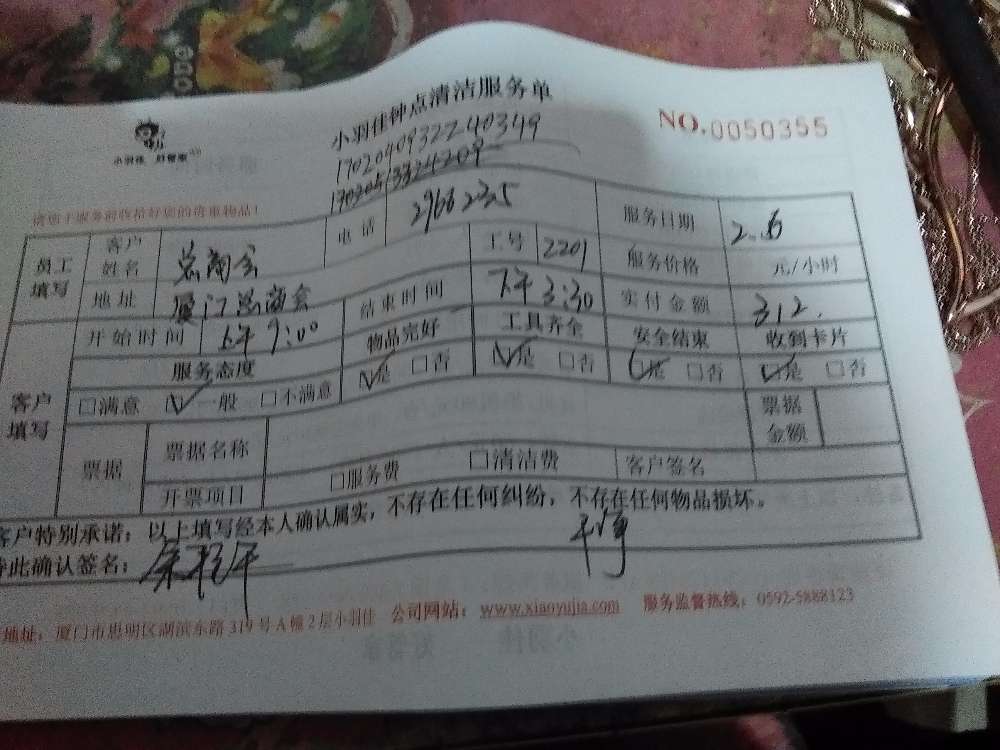 小羽佳钟点清洁服务单
小羽佳 好管家
NO.0050355
17020409322240349
请您于服务前收拾好您的贵重物品!
员工填写 客户姓名 总商会 电话 29662225 服务日期
地址 厦门总商会 工号 2201 服务价格 元/小时
开始时间 上午9:00 结束时间 下午3:30 实付金额 312.
客户填写 服务态度 物品完好 工具齐全 安全结束 收到卡片
□满意 ☑一般 □不满意 ☑是 □否 ☑是 □否 ☑是 □否 ☑是 □否
票据 票据名称 票据金额
开票项目 □服务费 □清洁费 客户签名
客户特别承诺:以上填写经本人确认属实,不存在任何纠纷,不存在任何物品损坏。
特此确认签名:
地址:厦门市思明区湖滨东路319号A幢2层小羽佳 公司网站:www.xiaoyujia.com 服务监督热线:0592-5888123